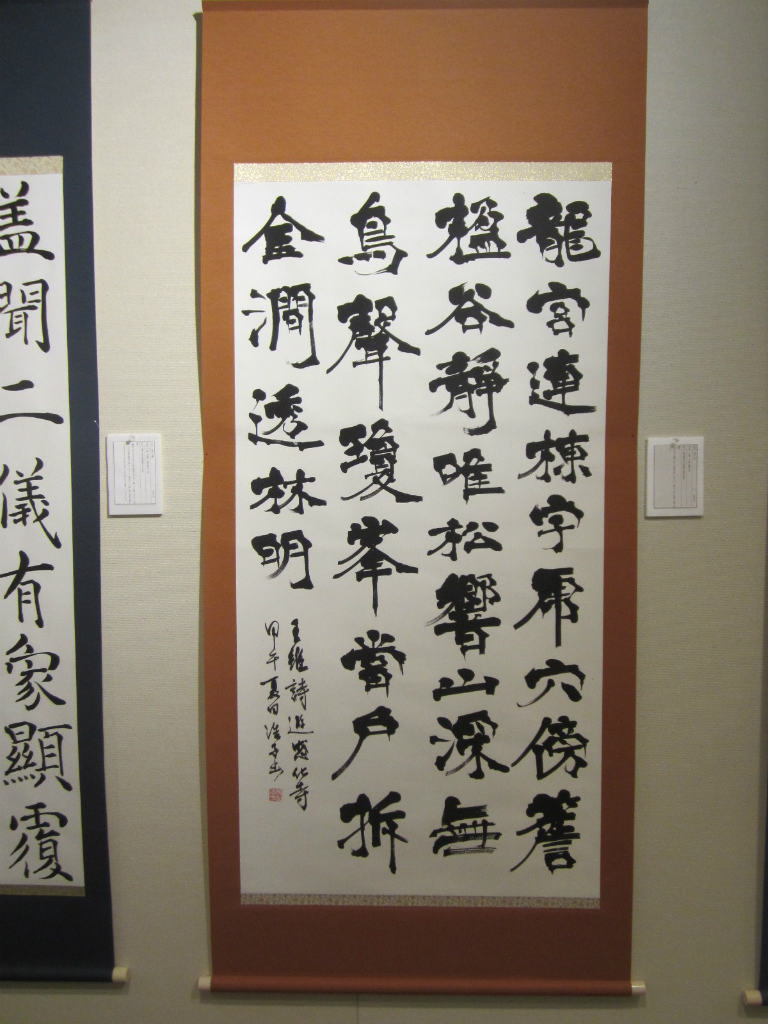 龍宮連棟宇虎穴傍簷
楹谷靜唯松響山深無
鳥聲瓊峯當戶拆
金澗透林明
王維詩遊感化寺
甲午夏日
盖聞二儀有象顯覆